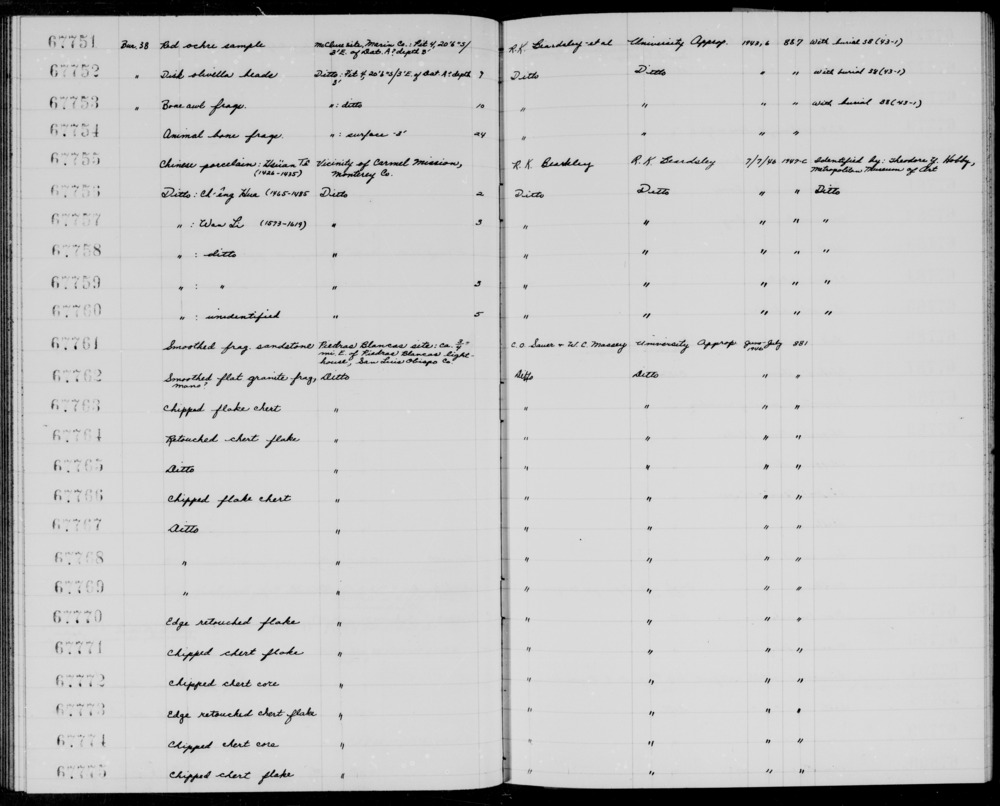 67751 Bur. 38 Red ochre sample McClure site, Marin Co.: Pit 4, 20'6"S/ R.K. Beardsley et al University Approp. 1943,6 887 With burial 38 (43-1)
3'E. of Dat. A: depth 3'
67752 " Disk olivella beads Ditto: Pit 4 20'6"S/3'E. of Dat. A: depth 9 Ditto Ditto " " With burial 38 (43-1)
3'
67753 " Bone awl frags. " : ditto 10 " " " " With burial 38 (43-1)
67754 Animal bone frags. " : surface -3' 24 " " " "
67755 Chinese porcelain: Hsüan Tê Vicinity of Carmel Mission, R.K. Beardsley R.K. Beardsley 7/7/46 1747-C Identified by: Theodore Y. Hobby,
(1426-1435) Monterey Co. Metropolitan Museum of Art
67756 Ditto: Ch'êng Hua (1465-1485 Ditto 2 Ditto Ditto " " Ditto
67757 " : Wan Li (1573-1619) " 3 " " " " "
67758 " : ditto " " " " " "
67759 " : " " 3 " " " " "
67760 " : unidentified " 5 " " " " "
67761 Smoothed frag. sandstone Piedras Blancas site: ca. 3/4 C.O. Sauer + W.C. Massey University Approp. June-July 881
mi. E. of Piedras Blancas light- 1946
house, San Luis Obispo Co.
67762 Smoothed flat granite frag, Ditto Ditto Ditto " "
mano?
67763 Chipped flake chert " " " " "
67764 Retouched chert flake " " " " "
67765 Ditto " " " " "
67766 Chipped flake chert " " " " "
67767 Ditto " " " " "
67768 " " " " " "
67769 " " " " " "
67770 Edge retouched flake " " " " "
67771 Chipped chert flake " " " " "
67772 Chipped chert core " " " " "
67773 Edge retouched chert flake " " " " "
67774 Chipped chert core " " " " "
67775 Chipped chert flake " " " " "